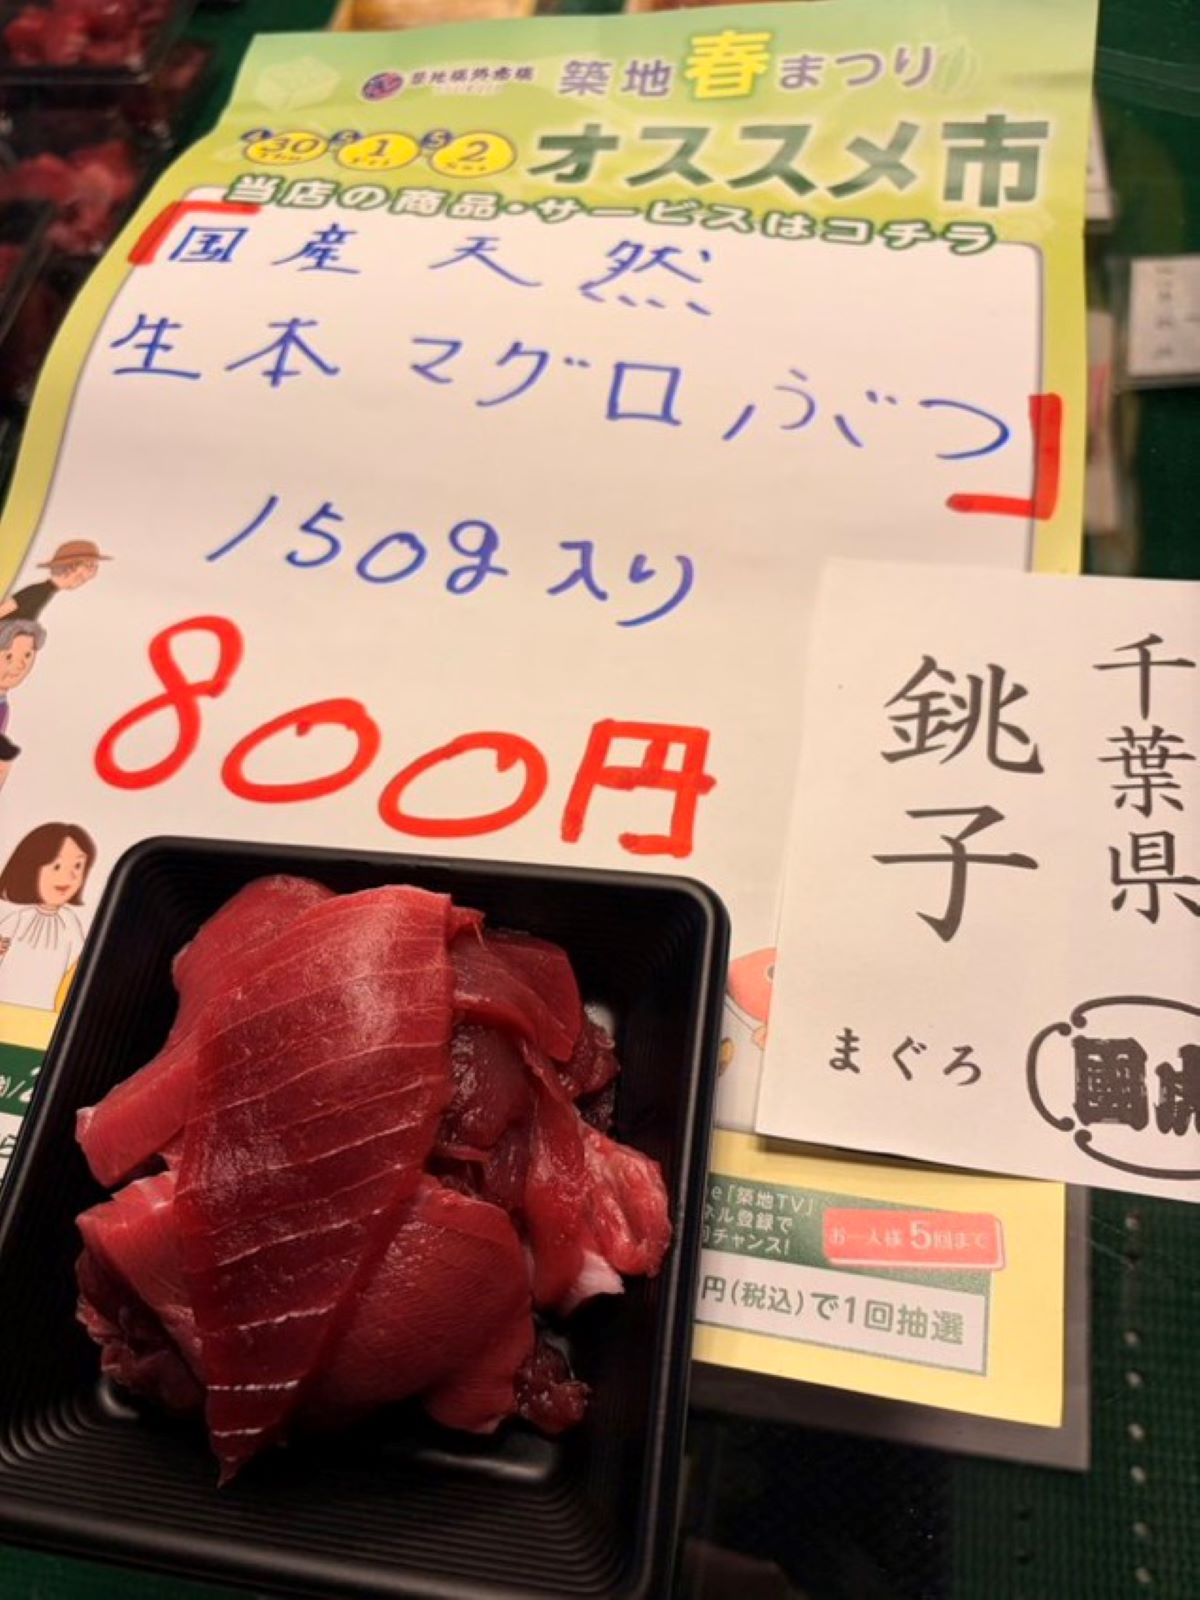 築地場外市場 築地春まつり
4 30 Thu 5 1 Fri 5 2 Sat オススメ市
当店の商品・サービスはコチラ
「国産 天然
生本マグロぶつ」
150g入り
800円
千葉県
銚子
まぐろ
e「築地TV」
ネル登録で
チャンス!
お一人様5回まで
円(税込)で1回抽選